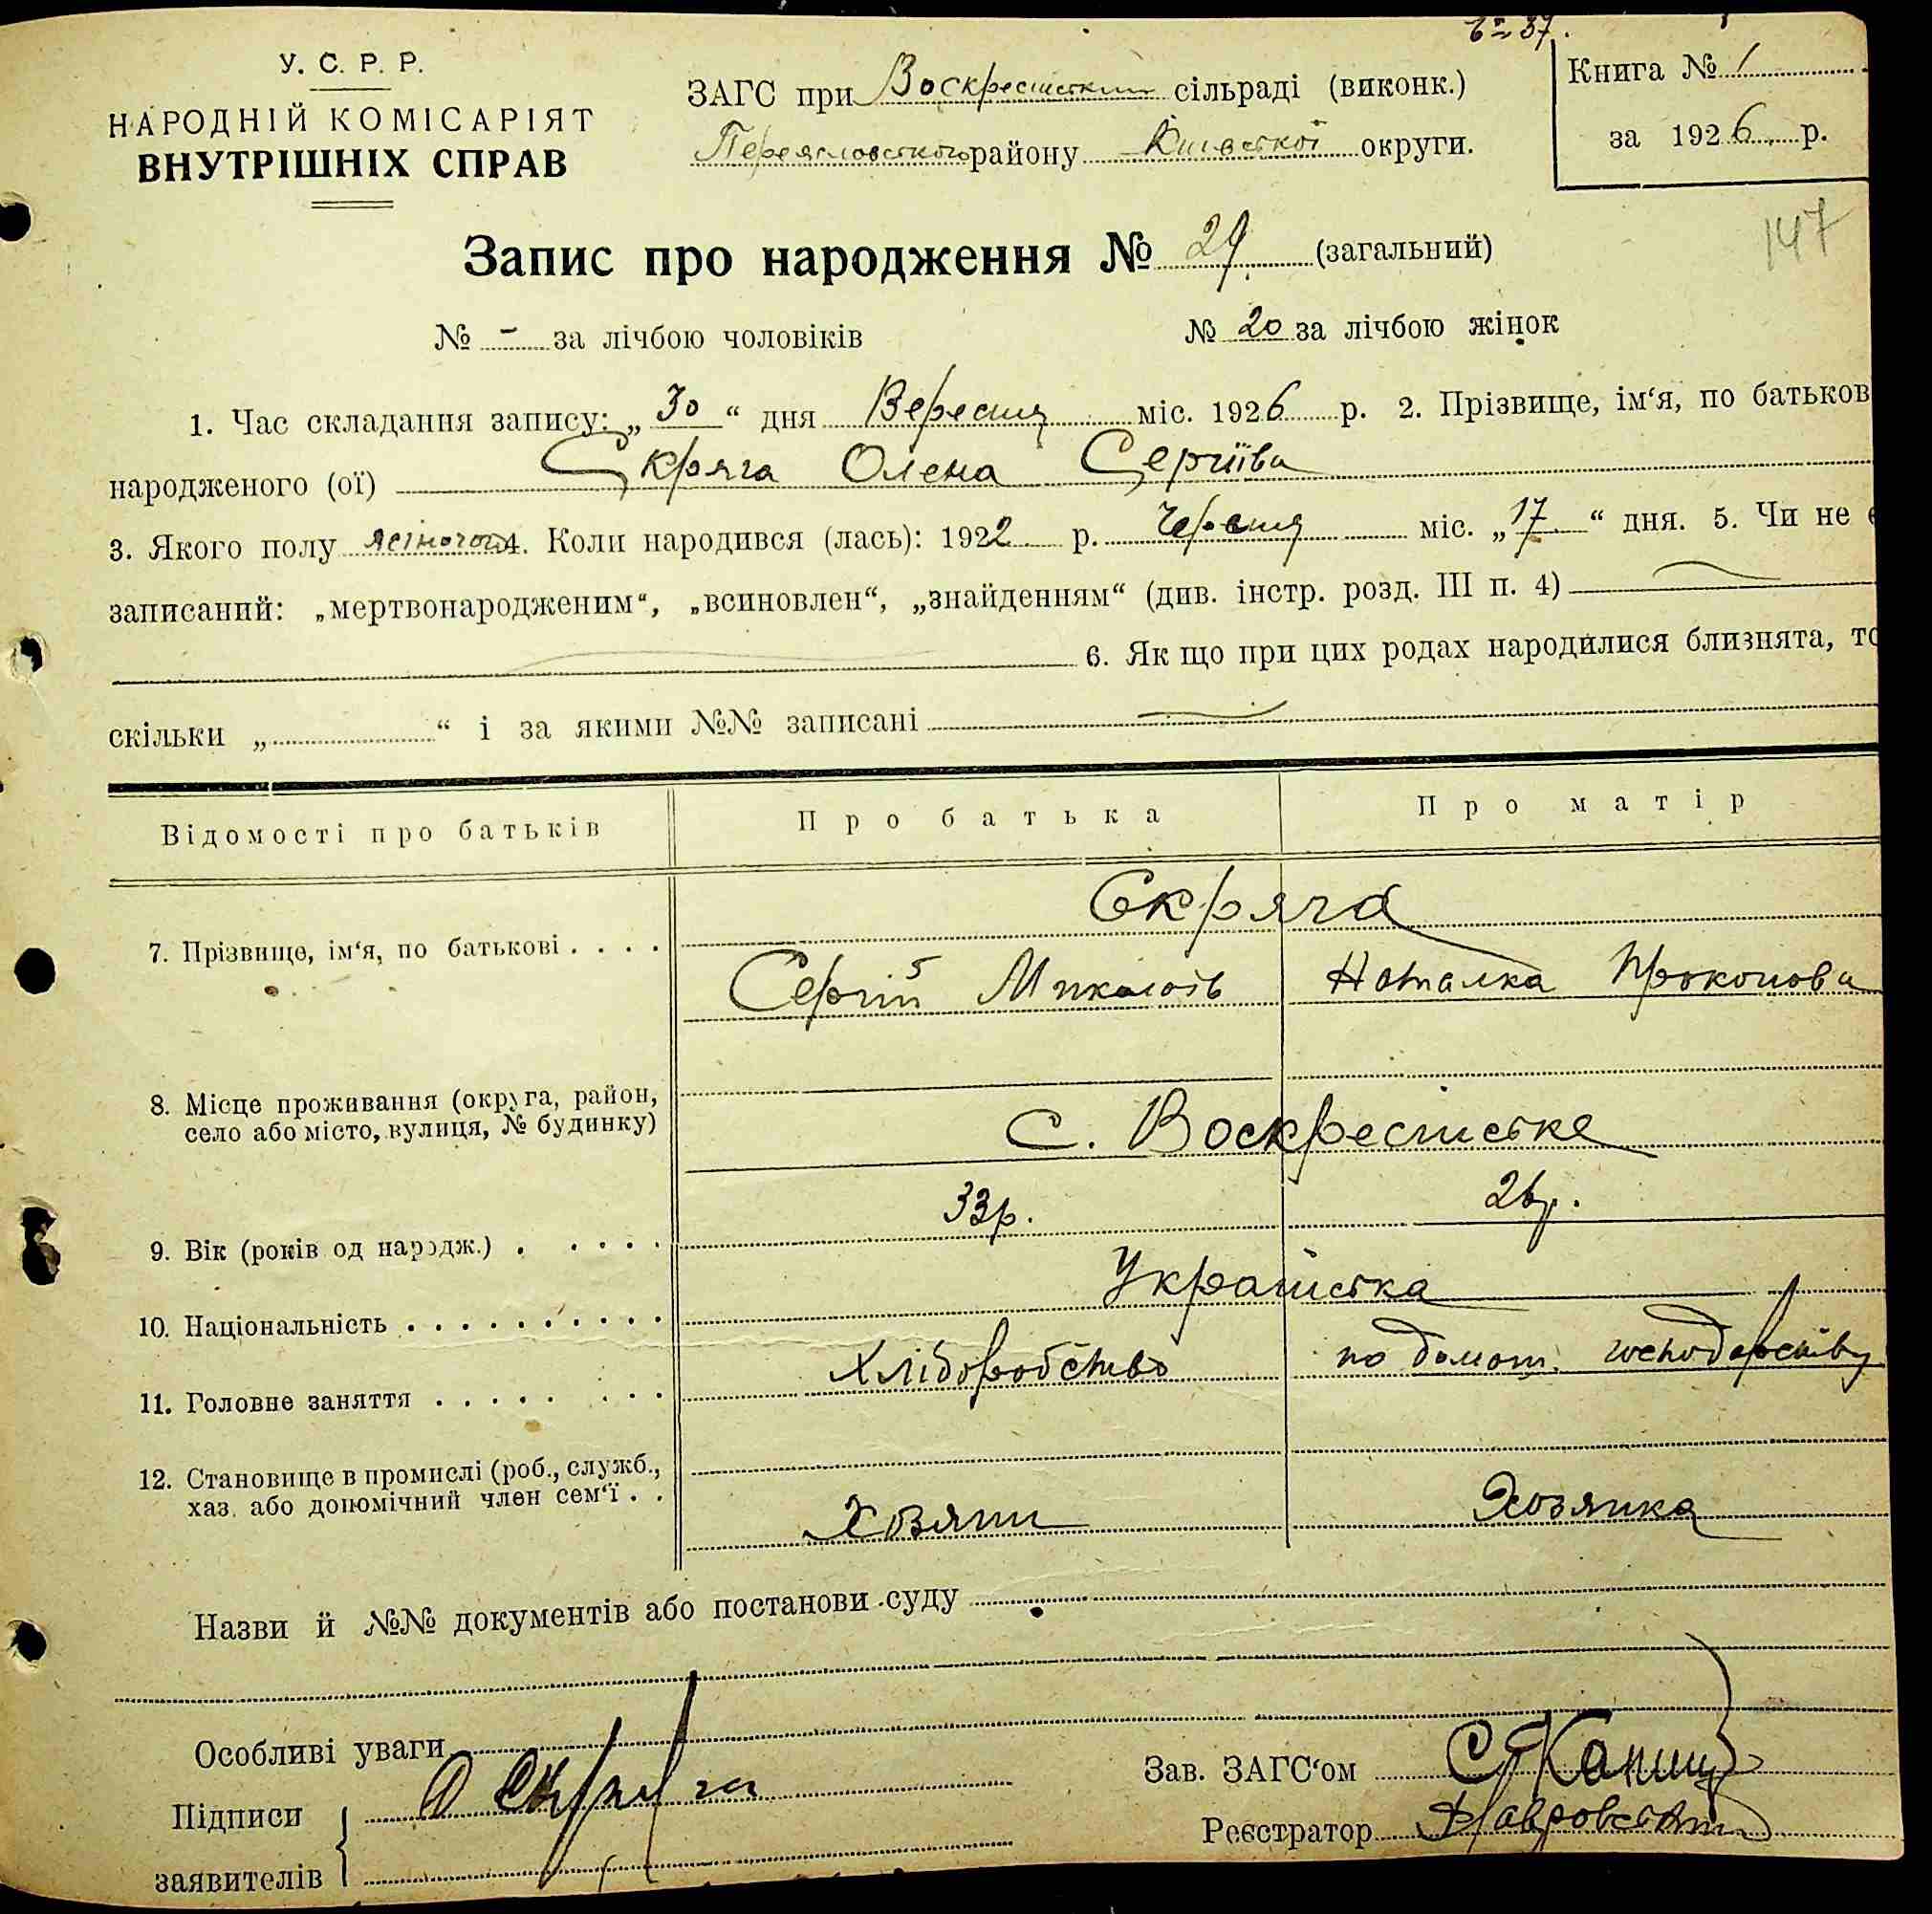 6 37.
У. С. Р. Р.
НАРОДНІЙ КОМІСАРІЯТ
ВНУТРІШНІХ СПРАВ
ЗАГС при Воскресінський сільраді (виконк.)
Переясловського району Київської округи.
Книга № 1
за 1926 р.
147
Запис про народження № 29 (загальний)
№ - за лічбою чоловіків № 20 за лічбою жінок
1. Час складання запису: „30“ дня Вересня міс. 1926 р. 2. Прізвище, ім‘я, по батьков
народженого (ої) Скряга Олена Сергіїва
3. Якого полу жіночого 4. Коли народився (лась): 1922 р. Червня міс. „17“ дня. 5. Чи не є
записаний: „мертвонародженим“, „всиновлен“, „знайденням“ (див. інстр. розд. III п. 4)
6. Як що при цих родах народилися близнята, то
скільки „ “ і за якими №№ записані
Відомості про батьків Про батька Про матір
Скряга
7. Прізвище, ім‘я, по батькові . . . . Сергій Миколаїв Наталка Прокопова
8. Місце проживання (округа, район,
село або місто, вулиця, № будинку) С. Воскресінське
9. Вік (років од народж.) . . . . . 33р. 26р.
10. Національність . . . . . . . . . . Українська
11. Головне заняття . . . . . . . . Хліборобство по домаш. господарству
12. Становище в промислі (роб., служб.,
хаз. або допомічний член сем‘ї . . Хозяин Хозяйка
Назви й №№ документів або постанови суду
Особливі уваги
Підписи Скряга
заявителів
Зав. ЗАГС‘ом
Реєстратор